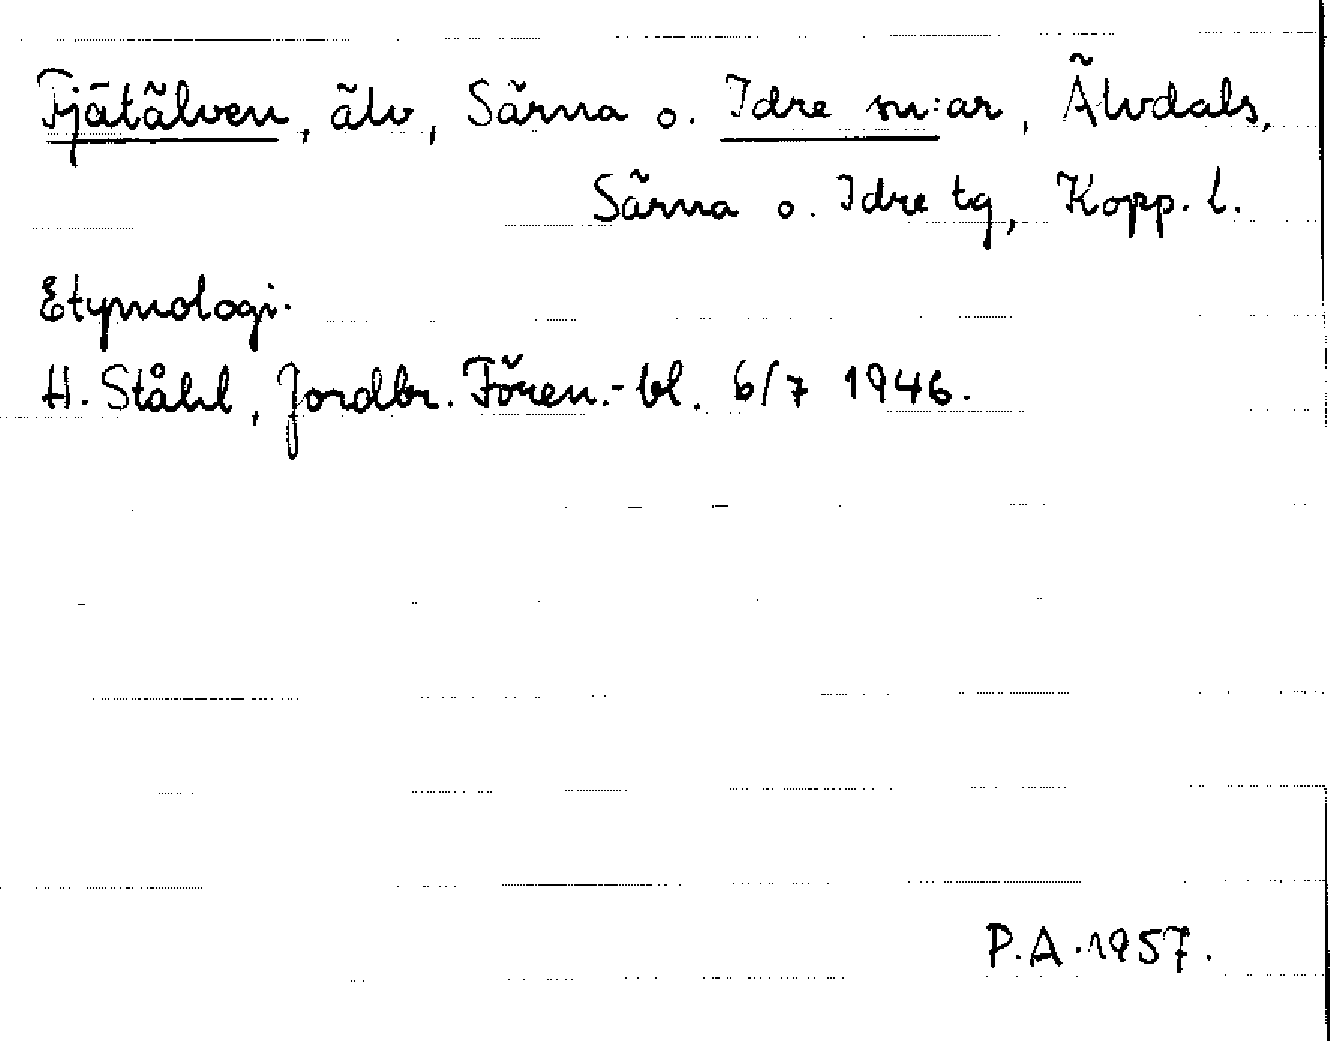 Fjätälven, älv, Särna o. Idre sn:ar, Älvdals,
Särna o. Idre tg, Kopp. l.
Etymologi.
H. Ståhl, Jordbr. Fören.-bl. 6/7 1946.
P.A. 1957.